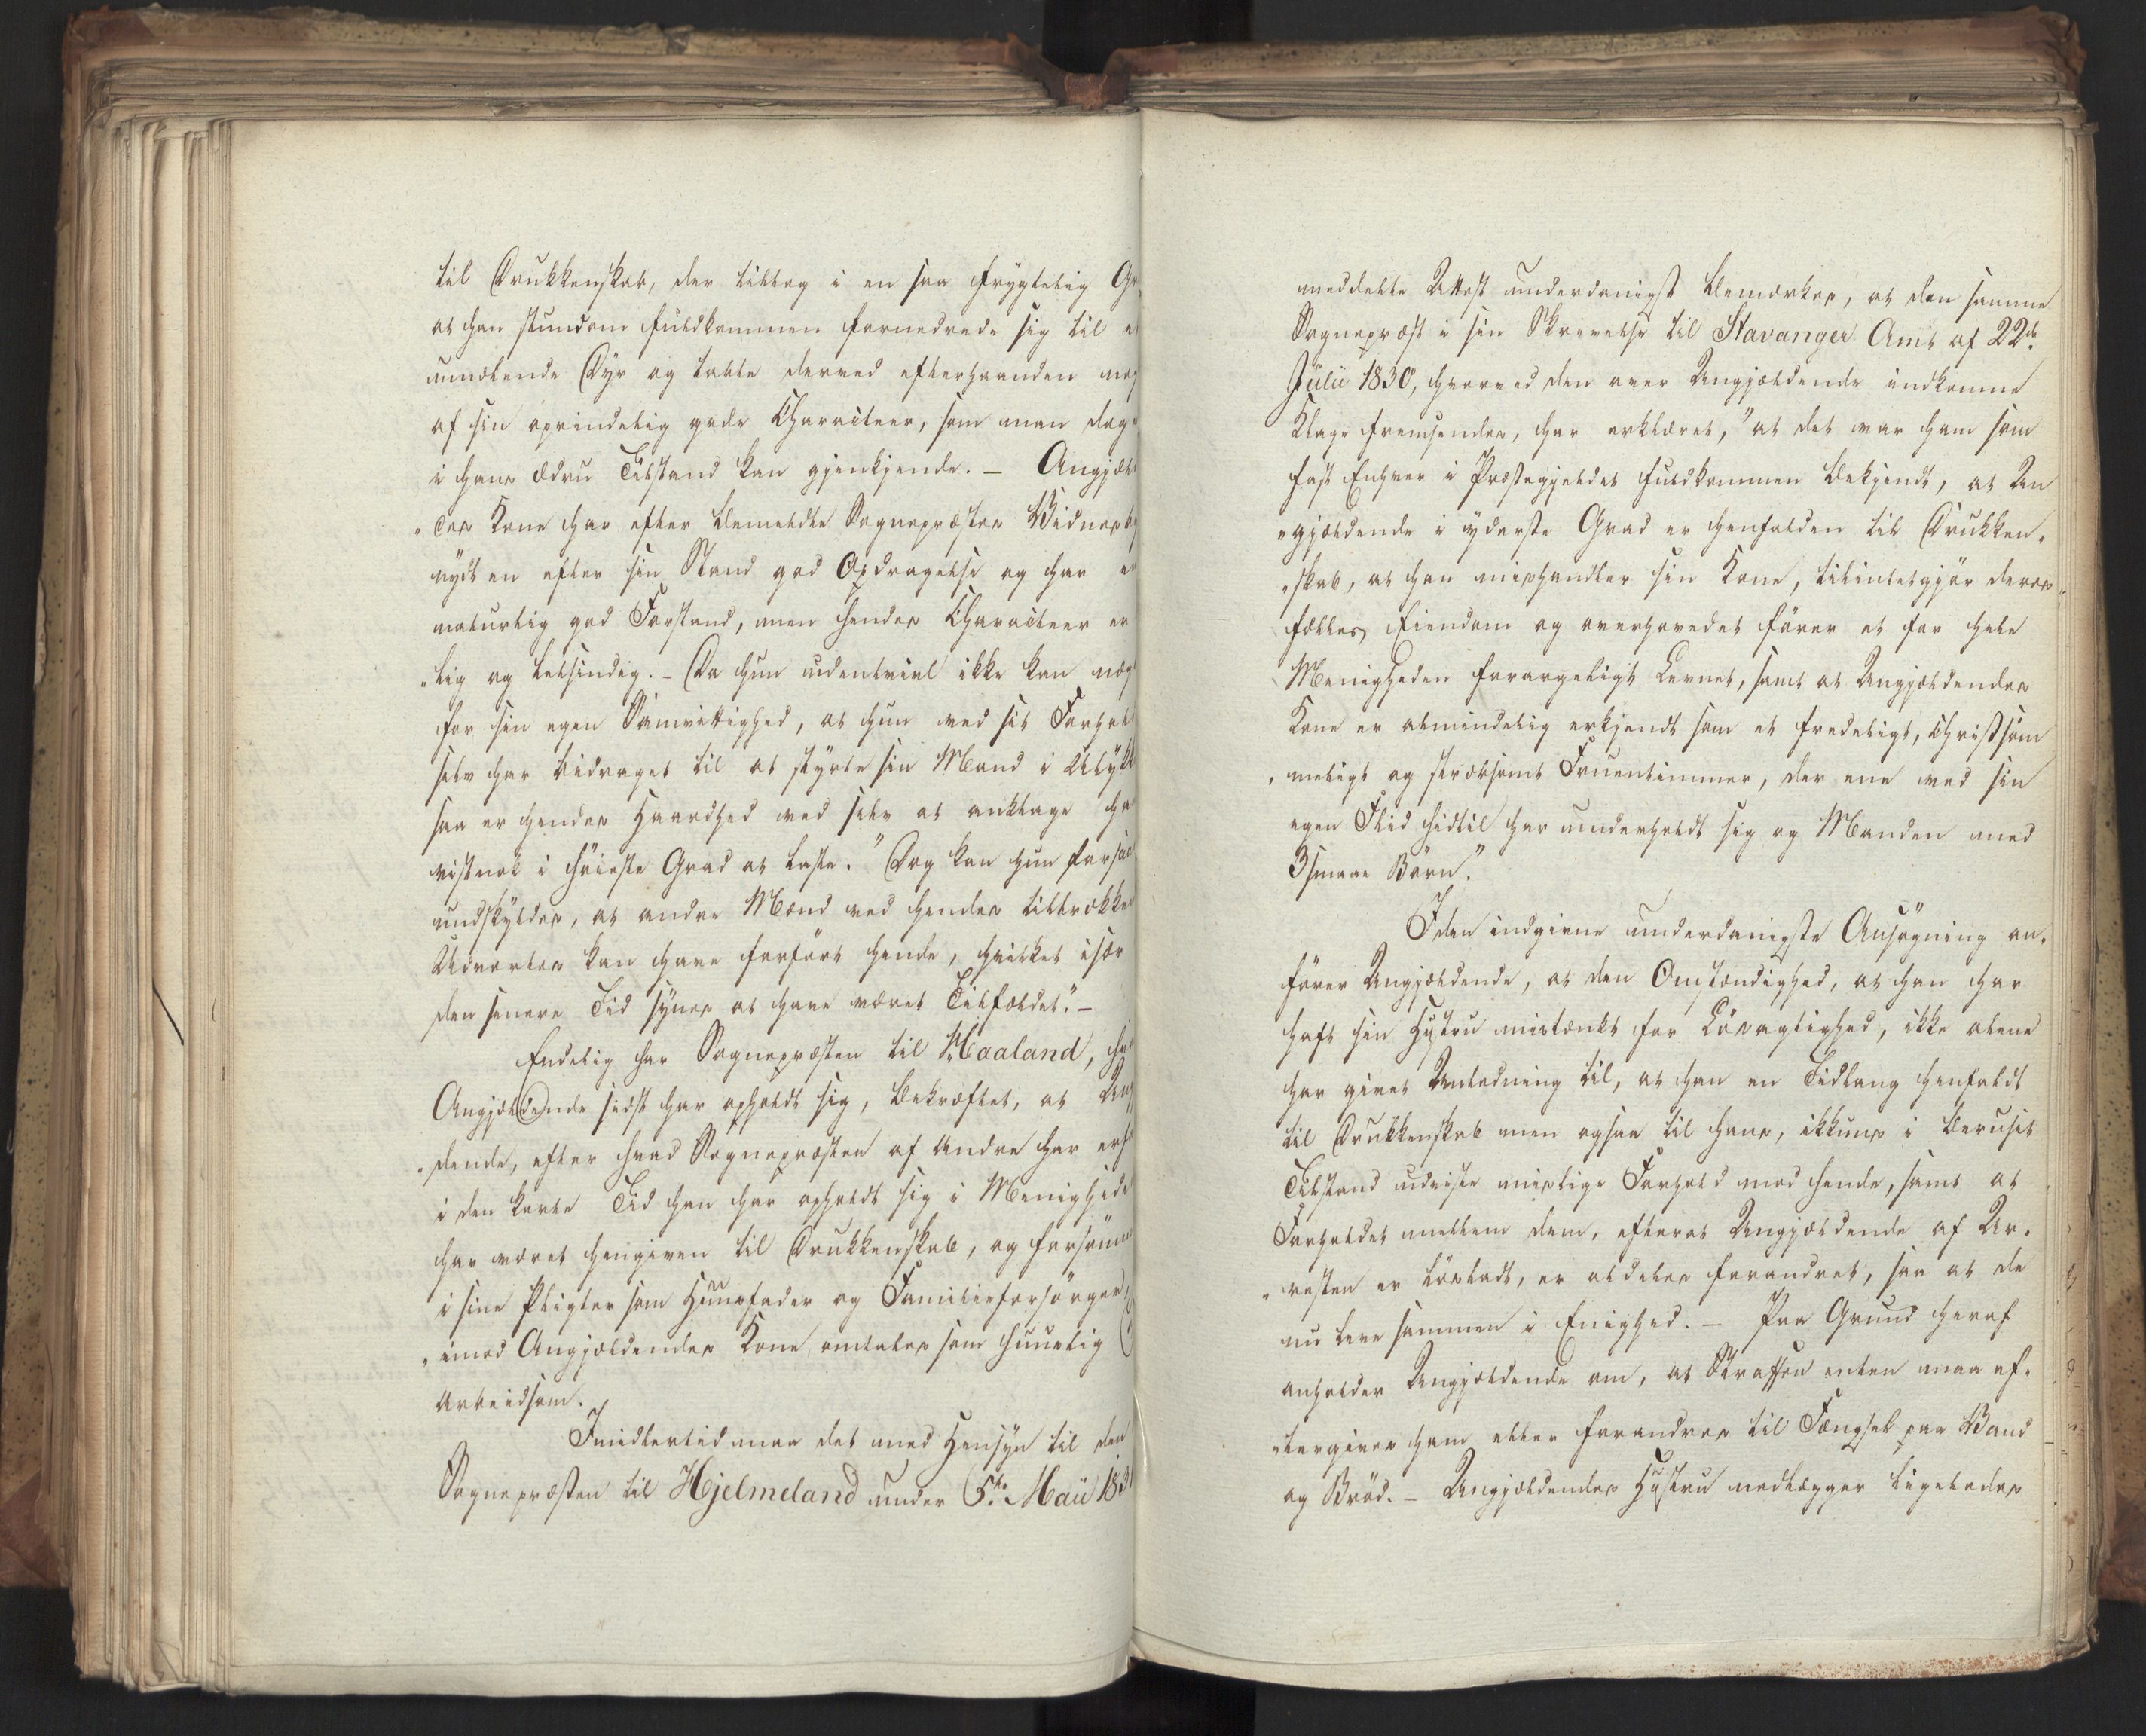 til Drukkenskab, der tiltog i en saa frygtelig Gr
at han stundom fuldkommen fornedrede sig til e
umælende Dyr og tabte derved efterhaanden meg
af sin oprindelig gode Characteer, som man dog
i hans ædru Tilstand kan gjenkjende. – Angjæl
„des Kone har efter bemeldte Sognepræstes Vidnesb
nydt en efter sin Stand god Opdragelse og har e
naturlig god Forstand, men hendes Characteer er
„lig og letsindig. – Da hun udentvivl ikke kan næg
for sin egen Samvittighed, at hun ved sit Forhol
selv har bidraget til at styrte sin Mand i Ulykk
saa er hendes Haardhed ved selv at anklage ha
vistnok i høieste Grad at laste." Dog kan hun forsaa
undskyldes, at andre Mænd ved hendes tiltrække
Udvortes kan have forført hende, hvilket især
den senere Tid synes at have været Tilfældet." –
Endelig har Sognepræsten til Haaland, hv
Angjældende sidst har opholdt sig, bekræftet, at Ang
„dende, efter hvad Sognepræsten af Andre har erf
i den korte Tid han har opholdt sig i Menighede
har været hengiven til Drukkenskab, og forsømm
i sine Pligter som Huusfader og Familieforsørger,
„imod Angjældendes Kone omtales som huuslig
arbeidsom.
Imidlertid maa det med Hensyn til den
Sognepræsten til Hjelmeland under 5te Maii 183
meddeelte Attest underdanigst bemærkes, at den samme
Sognepræst i sin Skrivelse til Stavanger Amt af 22de
Julii 1830, hvorved den over Angjældende indkomne
Klage fremsendes, har erklæret, "at det var ham som
fast Enhver i Præstegjeldet fuldkommen bekjendt, at An
„gjældende i yderste Grad er henfalden til Drukken„
„skab, at han mishandler sin Kone, tilintetgjør deres
fælles Eiendom og overhovedet fører et for hele
Menigheden forargeligt Levnet, samt at Angjældendes
Kone er almindelig erkjendt som et fredeligt, christsom
„meligt og stræbsomt Fruentimmer, der ene ved sin
egen Flid hidtil har underholdt sig og Manden med
3 smaae Børn."
I den indgivne underdanigste Ansøgning an„
fører Angjældende, at den Omstændighed, at han har
haft sin Hustru mistænkt for Løsagtighed, ikke alene
har givet Anledning til, at han en Tidlang henfaldt
til Drukkenskab men ogsaa til hans, ikkuns i beruset
Tilstand udviste mislige Forhold mod hende, samt at
Forholdet mellem dem, efterat Angjældende af Ar„
„resten er løsladt, er aldeles forandret, saa at de
nu leve sammen i Enighed. – Paa Grund heraf
anholder Angjældende om, at Straffen enten maa ef„
„tergives ham eller forandres til Fængsel paa Vand
og Brød. – Angjældendes Hustru vedlægger ligeledes